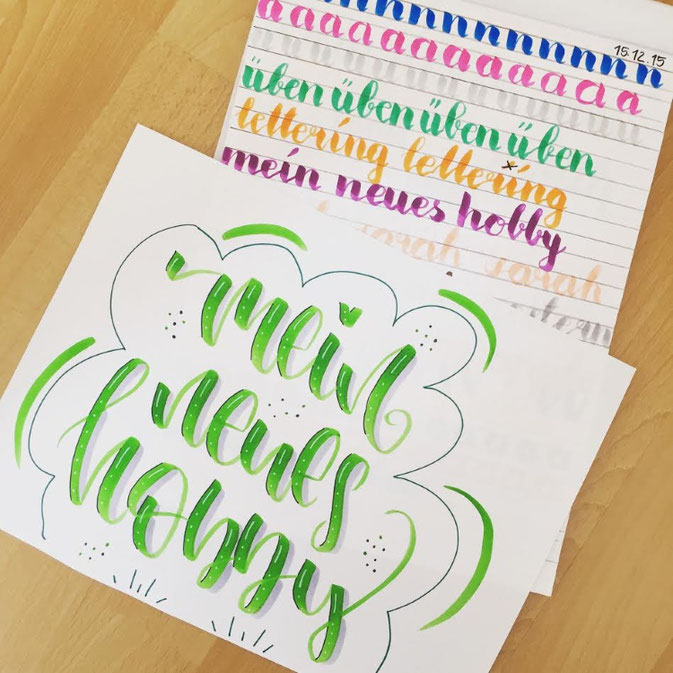 15.12.15
üben üben üben üben
lettering lettering
mein neues hobby
sarah sarah
mein
neues
hobby